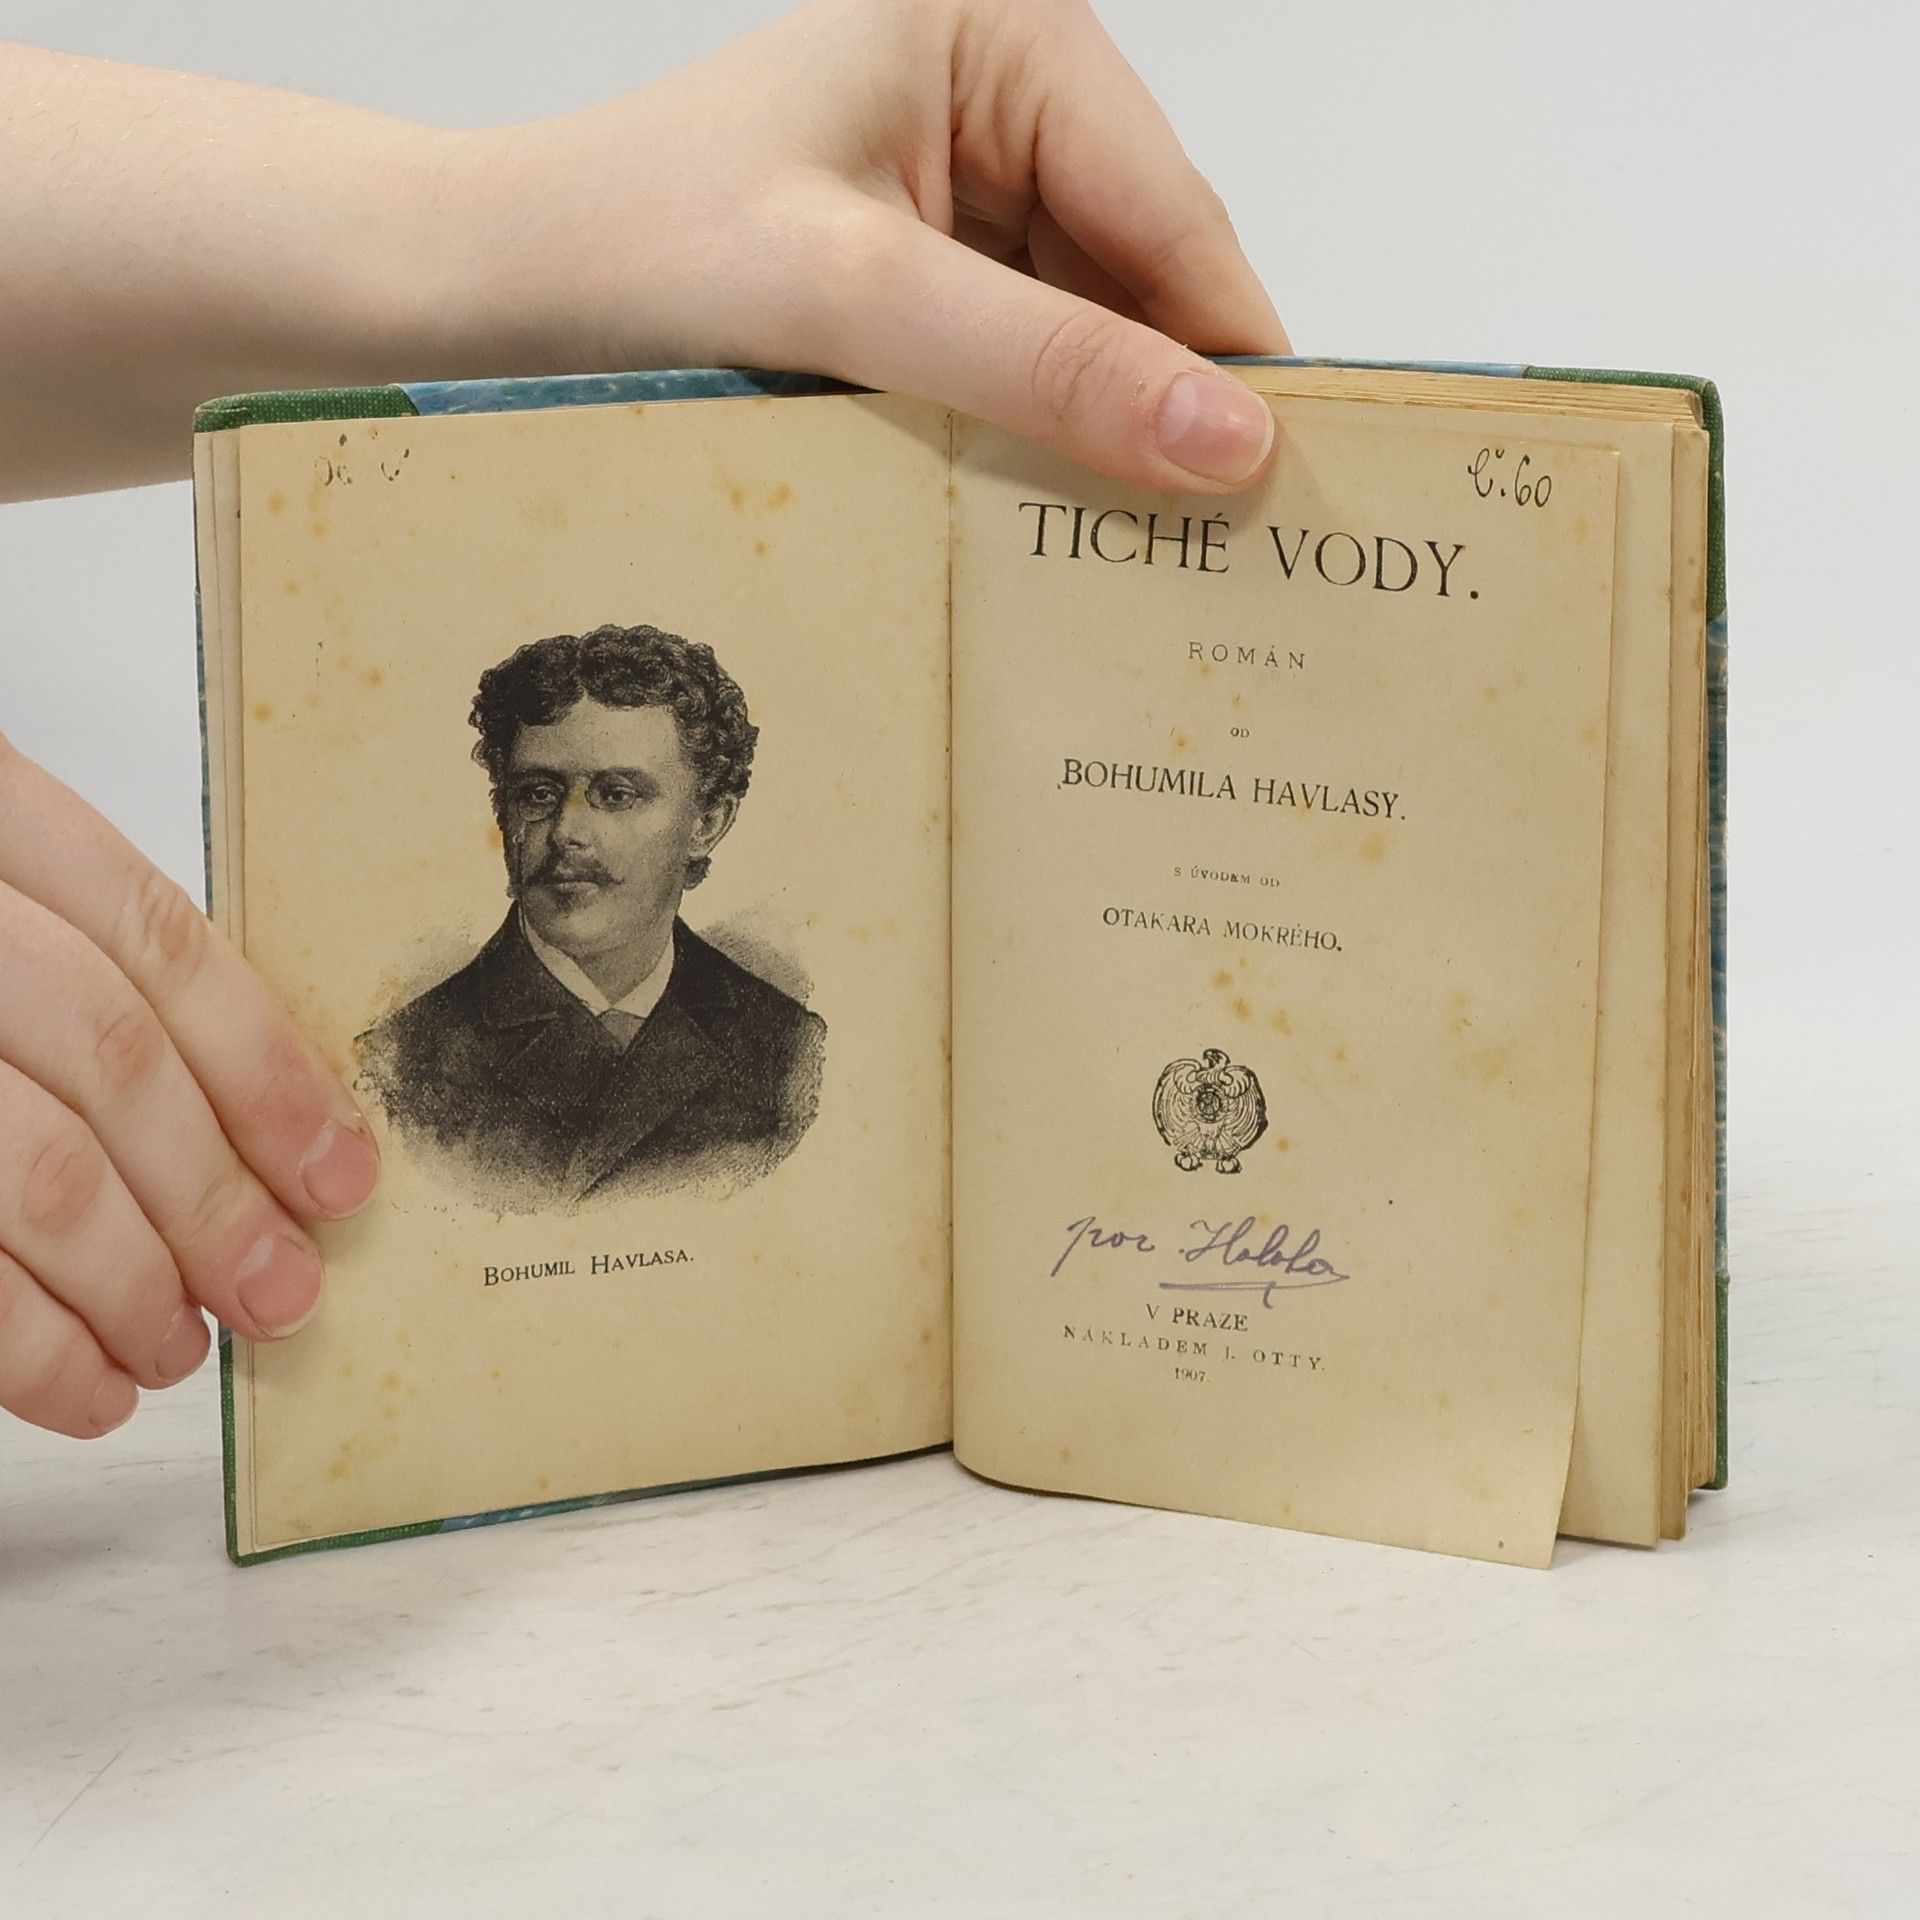 BOHUMIL HAVLASA.
Č. 60
TICHÉ VODY.
ROMÁN
OD
BOHUMILA HAVLASY.
S ÚVODEM OD
OTAKARA MOKRÉHO.
por
V PRAZE
NÁKLADEM J. OTTY.
1907.